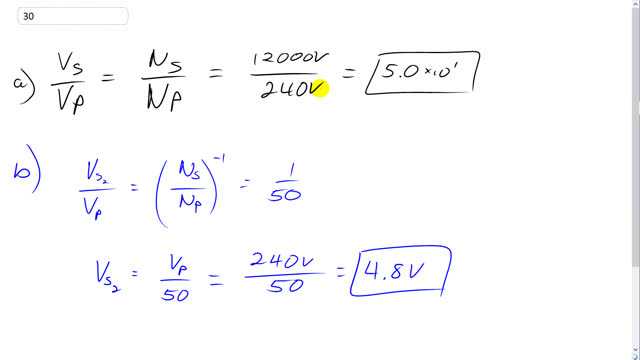 30
a) Vs/Vp = Ns/Np = 12000V/240V = 5.0×10¹
b) Vs₂/Vp = (Ns/Np)⁻¹ = 1/50
Vs₂ = Vp/50 = 240V/50 = 4.8V